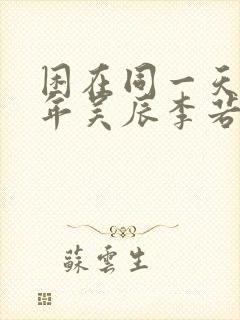 困在同一天
年吴辰李若
蘇雲生